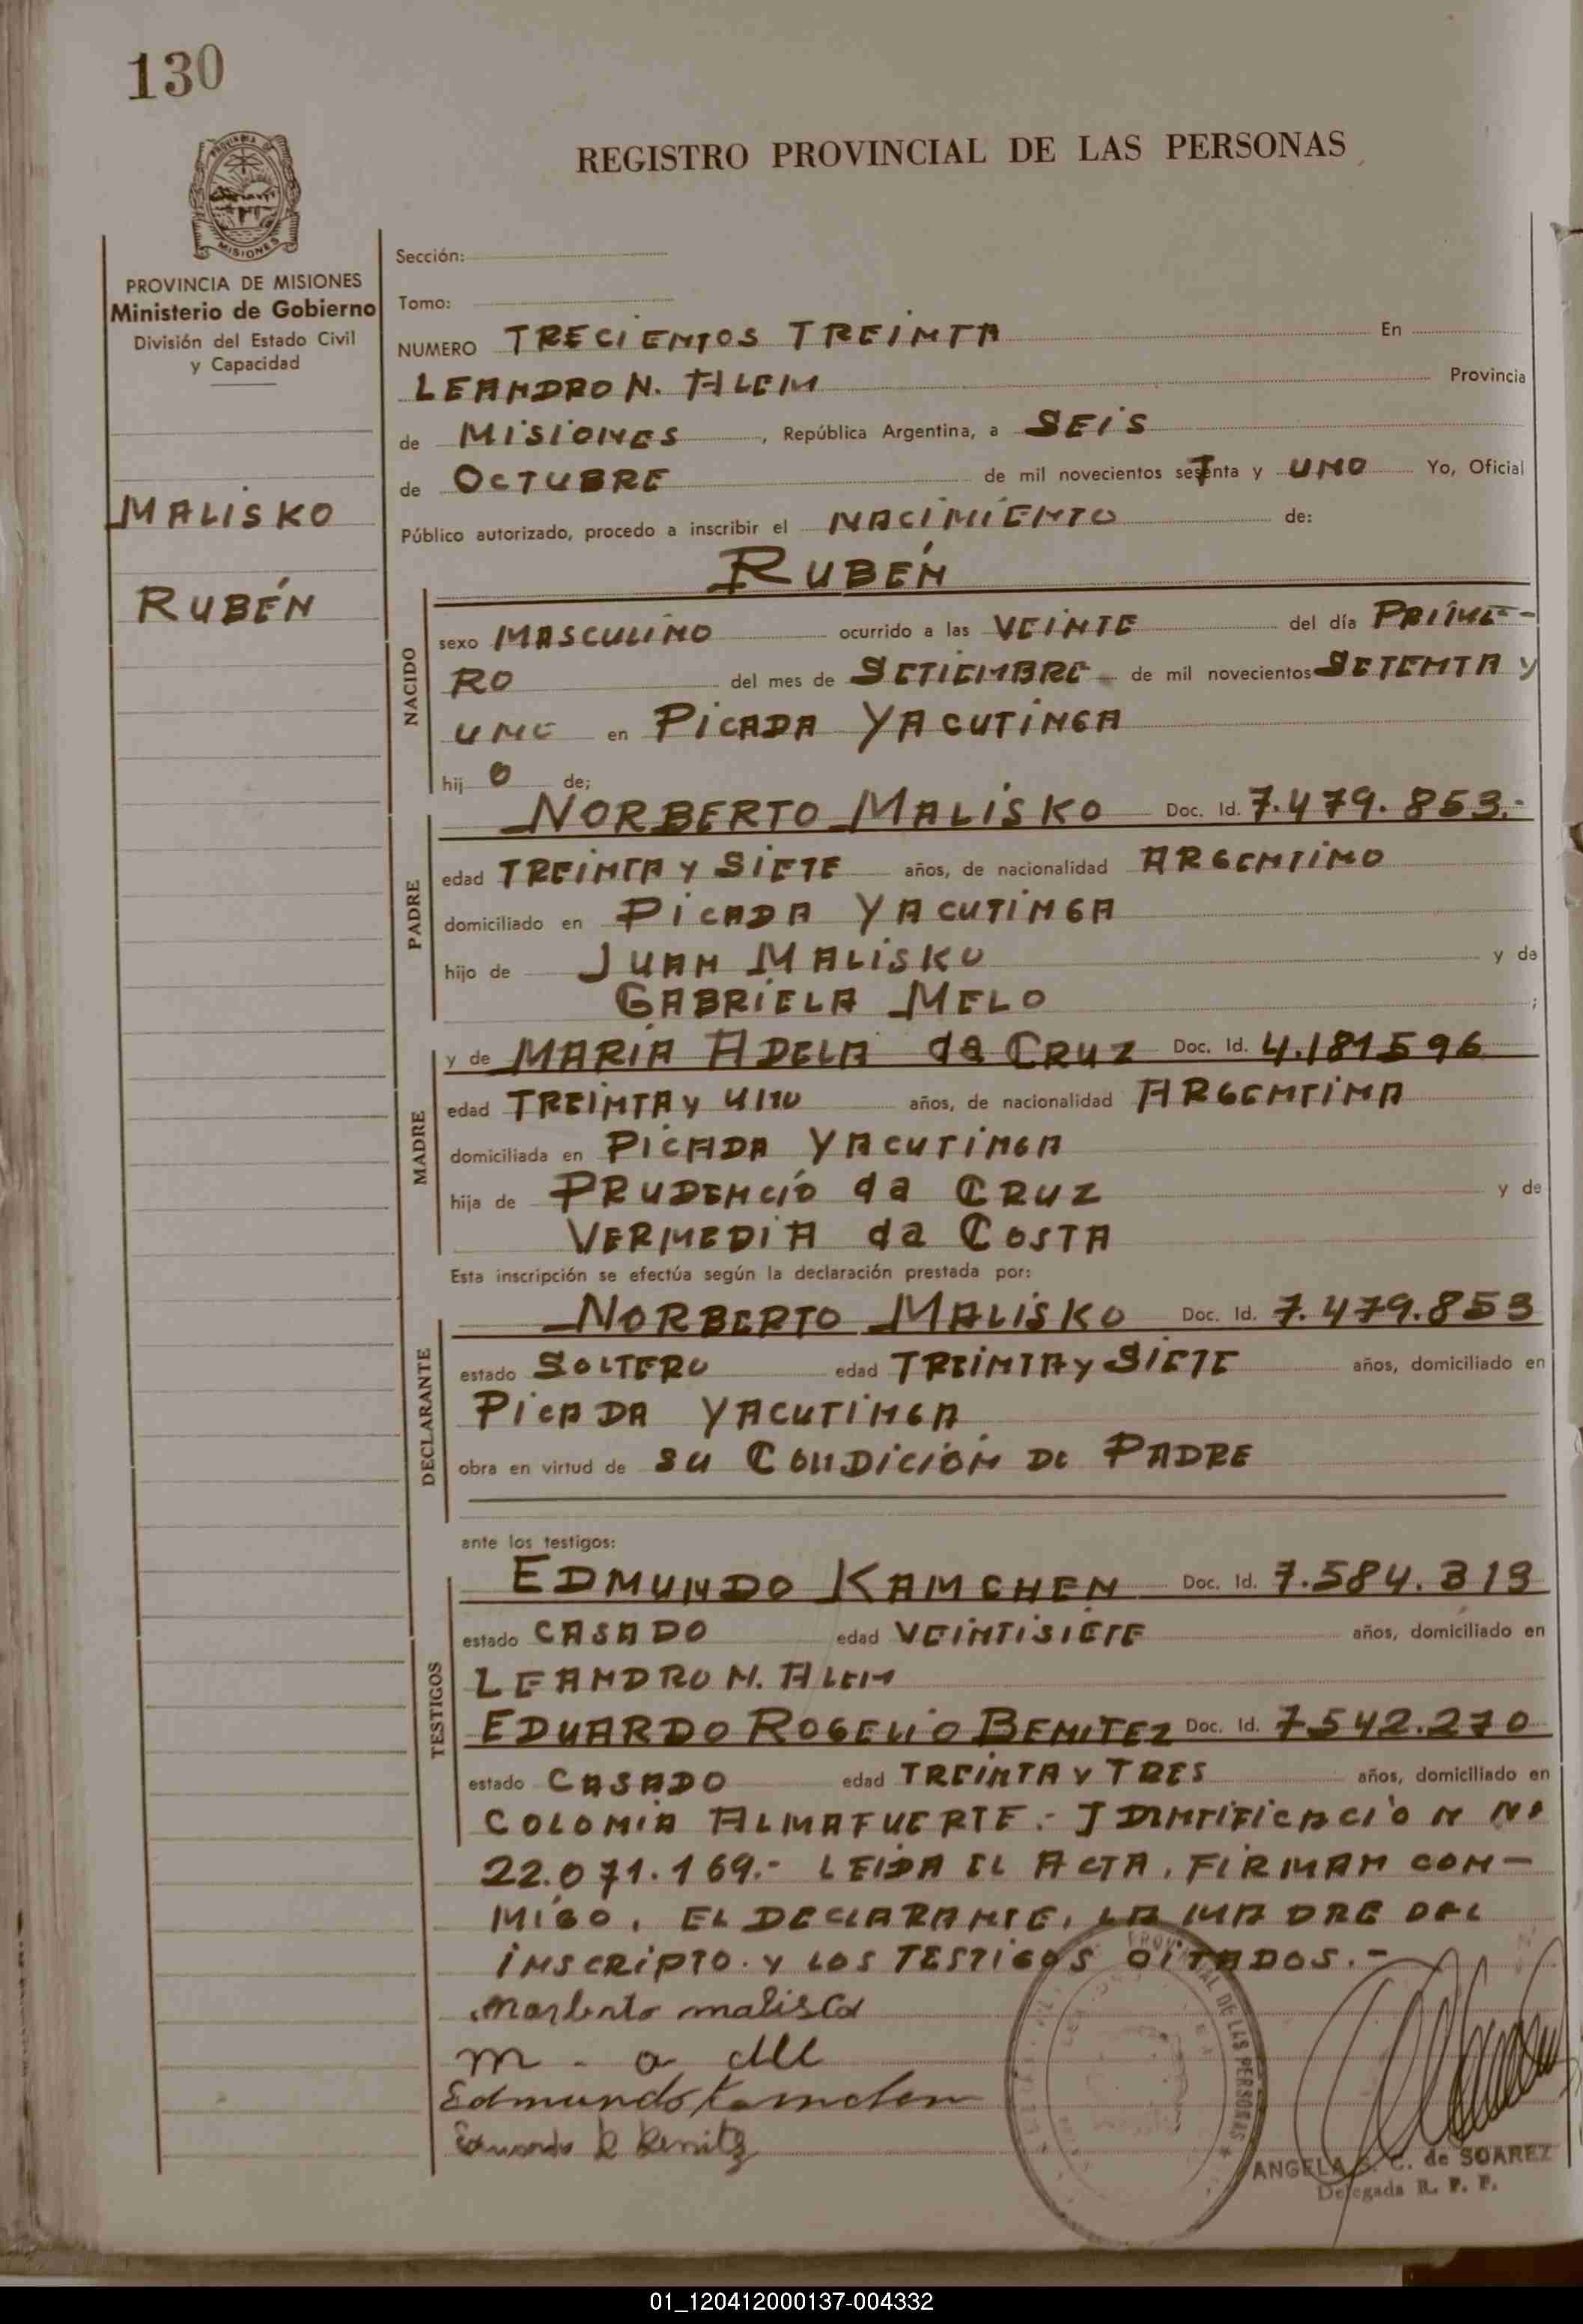 130
REGISTRO PROVINCIAL DE LAS PERSONAS
MISIONES
PROVINCIA DE MISIONES
Ministerio de Gobierno
División del Estado Civil
y Capacidad
MALISKO
RUBÉN
Sección:
Tomo:
NUMERO TRECIENTOS TREINTA En
LEANDRO N. ALEM Provincia
de MISIONES, República Argentina, a SEIS
de OCTUBRE de mil novecientos seTenta y UNO Yo, Oficial
Público autorizado, procedo a inscribir el NACIMIENTO de:
RUBÉN
NACIDO
sexo MASCULINO ocurrido a las VEINTE del día PRIME-
RO del mes de SETIEMBRE de mil novecientos SETENTA Y
UNO en PICADA YACUTINGA
hij O de;
PADRE
NORBERTO MALISKO Doc. Id. 7.479.853.-
edad TREINTA Y SIETE años, de nacionalidad ARGENTINO
domiciliado en PICADA YACUTINGA
hijo de JUAN MALISKO y de
GABRIELA MELO ;
MADRE
y de MARIA ADELA da CRUZ Doc. Id. 4.181596
edad TREINTA Y UNO años, de nacionalidad ARGENTINA
domiciliada en PICADA YACUTINGA
hija de PRUDENCIO da CRUZ y de
VERMEDIA da COSTA
Esta inscripción se efectúa según la declaración prestada por:
DECLARANTE
NORBERTO MALISKO Doc. Id. 7.479.853
estado SOLTERO edad TREINTA Y SIETE años, domiciliado en
PICADA YACUTINGA
obra en virtud de SU CONDICIÓN DE PADRE
ante los testigos:
TESTIGOS
EDMUNDO KAMCHEN Doc. Id. 7.584.319
estado CASADO edad VEINTISIETE años, domiciliado en
LEANDRO N. ALEM
EDUARDO ROGELIO BENITEZ Doc. Id. 7542.270
estado CASADO edad TREINTA Y TRES años, domiciliado en
COLONIA ALMAFUERTE.- IDENTIFICACIÓN Nº
22.071.169.- LEIDA EL ACTA, FIRMAN CON-
MIGO, EL DECLARANTE, LA MADRE DEL
INSCRIPTO Y LOS TESTIGOS CITADOS.-
Norberto malisco
m - a
Edmundo Kamchen
Eduardo R Benitez
DE LAS PERSONAS
ANGELA C. de SOAREZ
Delegada R. P. P.
01_120412000137-004332